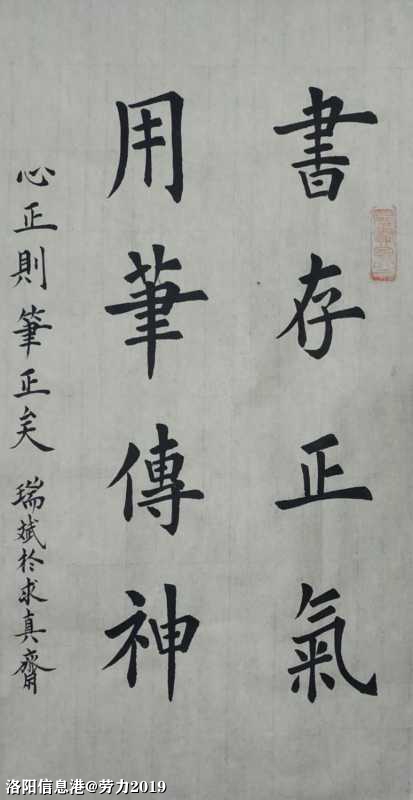 書存正氣
用筆傳神
心正則筆正矣 瑞斌於求真齋
洛阳信息港@劳力2019